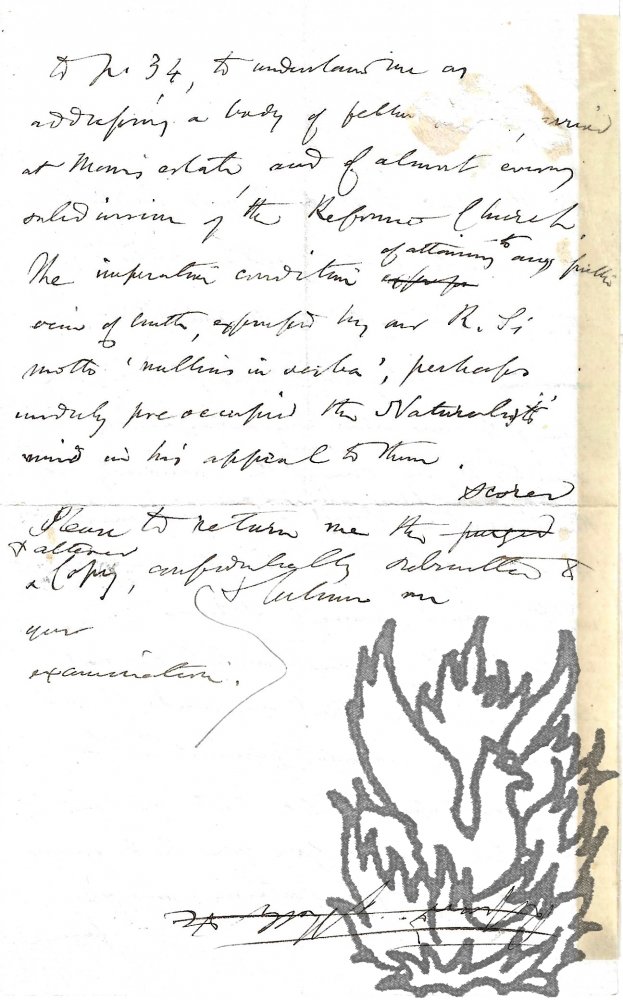 to p. 34, to understand me as
addressing a body of fellow
at Man's estate, and of almost every
subdivision of the Reformed Church.
The imperative condition of attaining to any
of truth, expressed by our R. S.'s
motto 'nullius in verba', perhaps
unduly preoccupied the Naturalist's
mind in his appeal to them.
scored
Please to return me the purged
& altered
Copy, confidentially submitted to
your
examination.